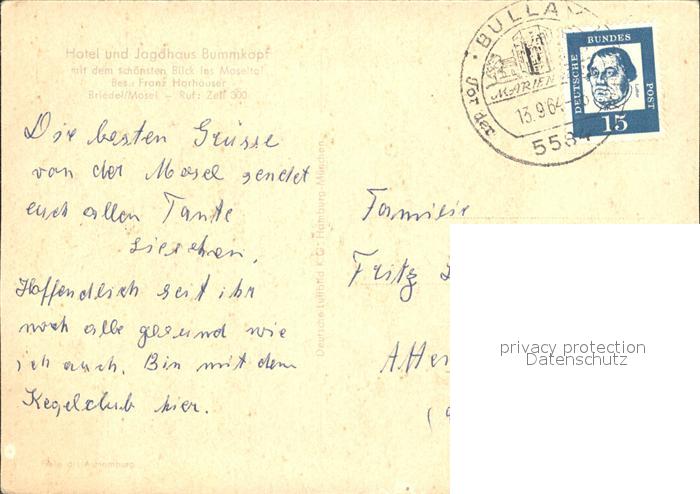 Hotel und Jagdhaus Bummkopf
mit dem schönsten Blick ins Moseltal
Bes.: Franz Harhäuser
Briedel/Mosel - Ruf: Zell 300
Die besten Grüsse
von der Mosel sendet
euch allen Tante
Lieschen.
Hoffendlich seit ihr
noch alle gesund wie
ich auch. Bin mit dem
Kegelclub hier.
Deutsche Luftbild K.G. Hamburg-München
BULLAY
MARIEN
13.9.64
5584
DEUTSCHE BUNDES POST
15
Familie
Fritz
privacy protection
Datenschutz